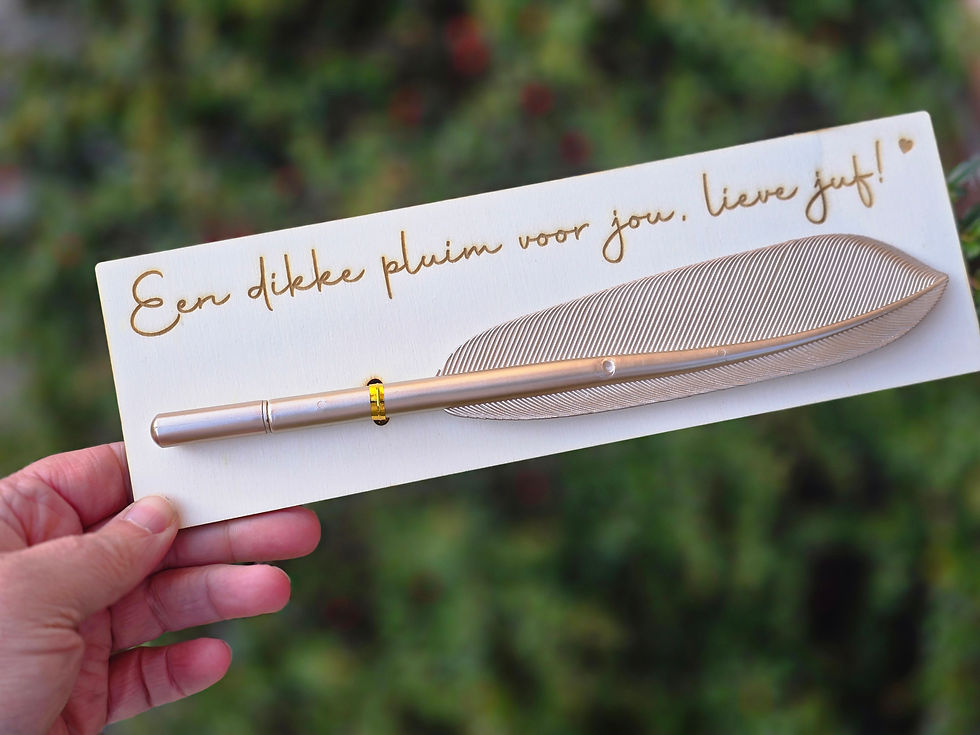 Een dikke pluim voor jou, lieve juf!